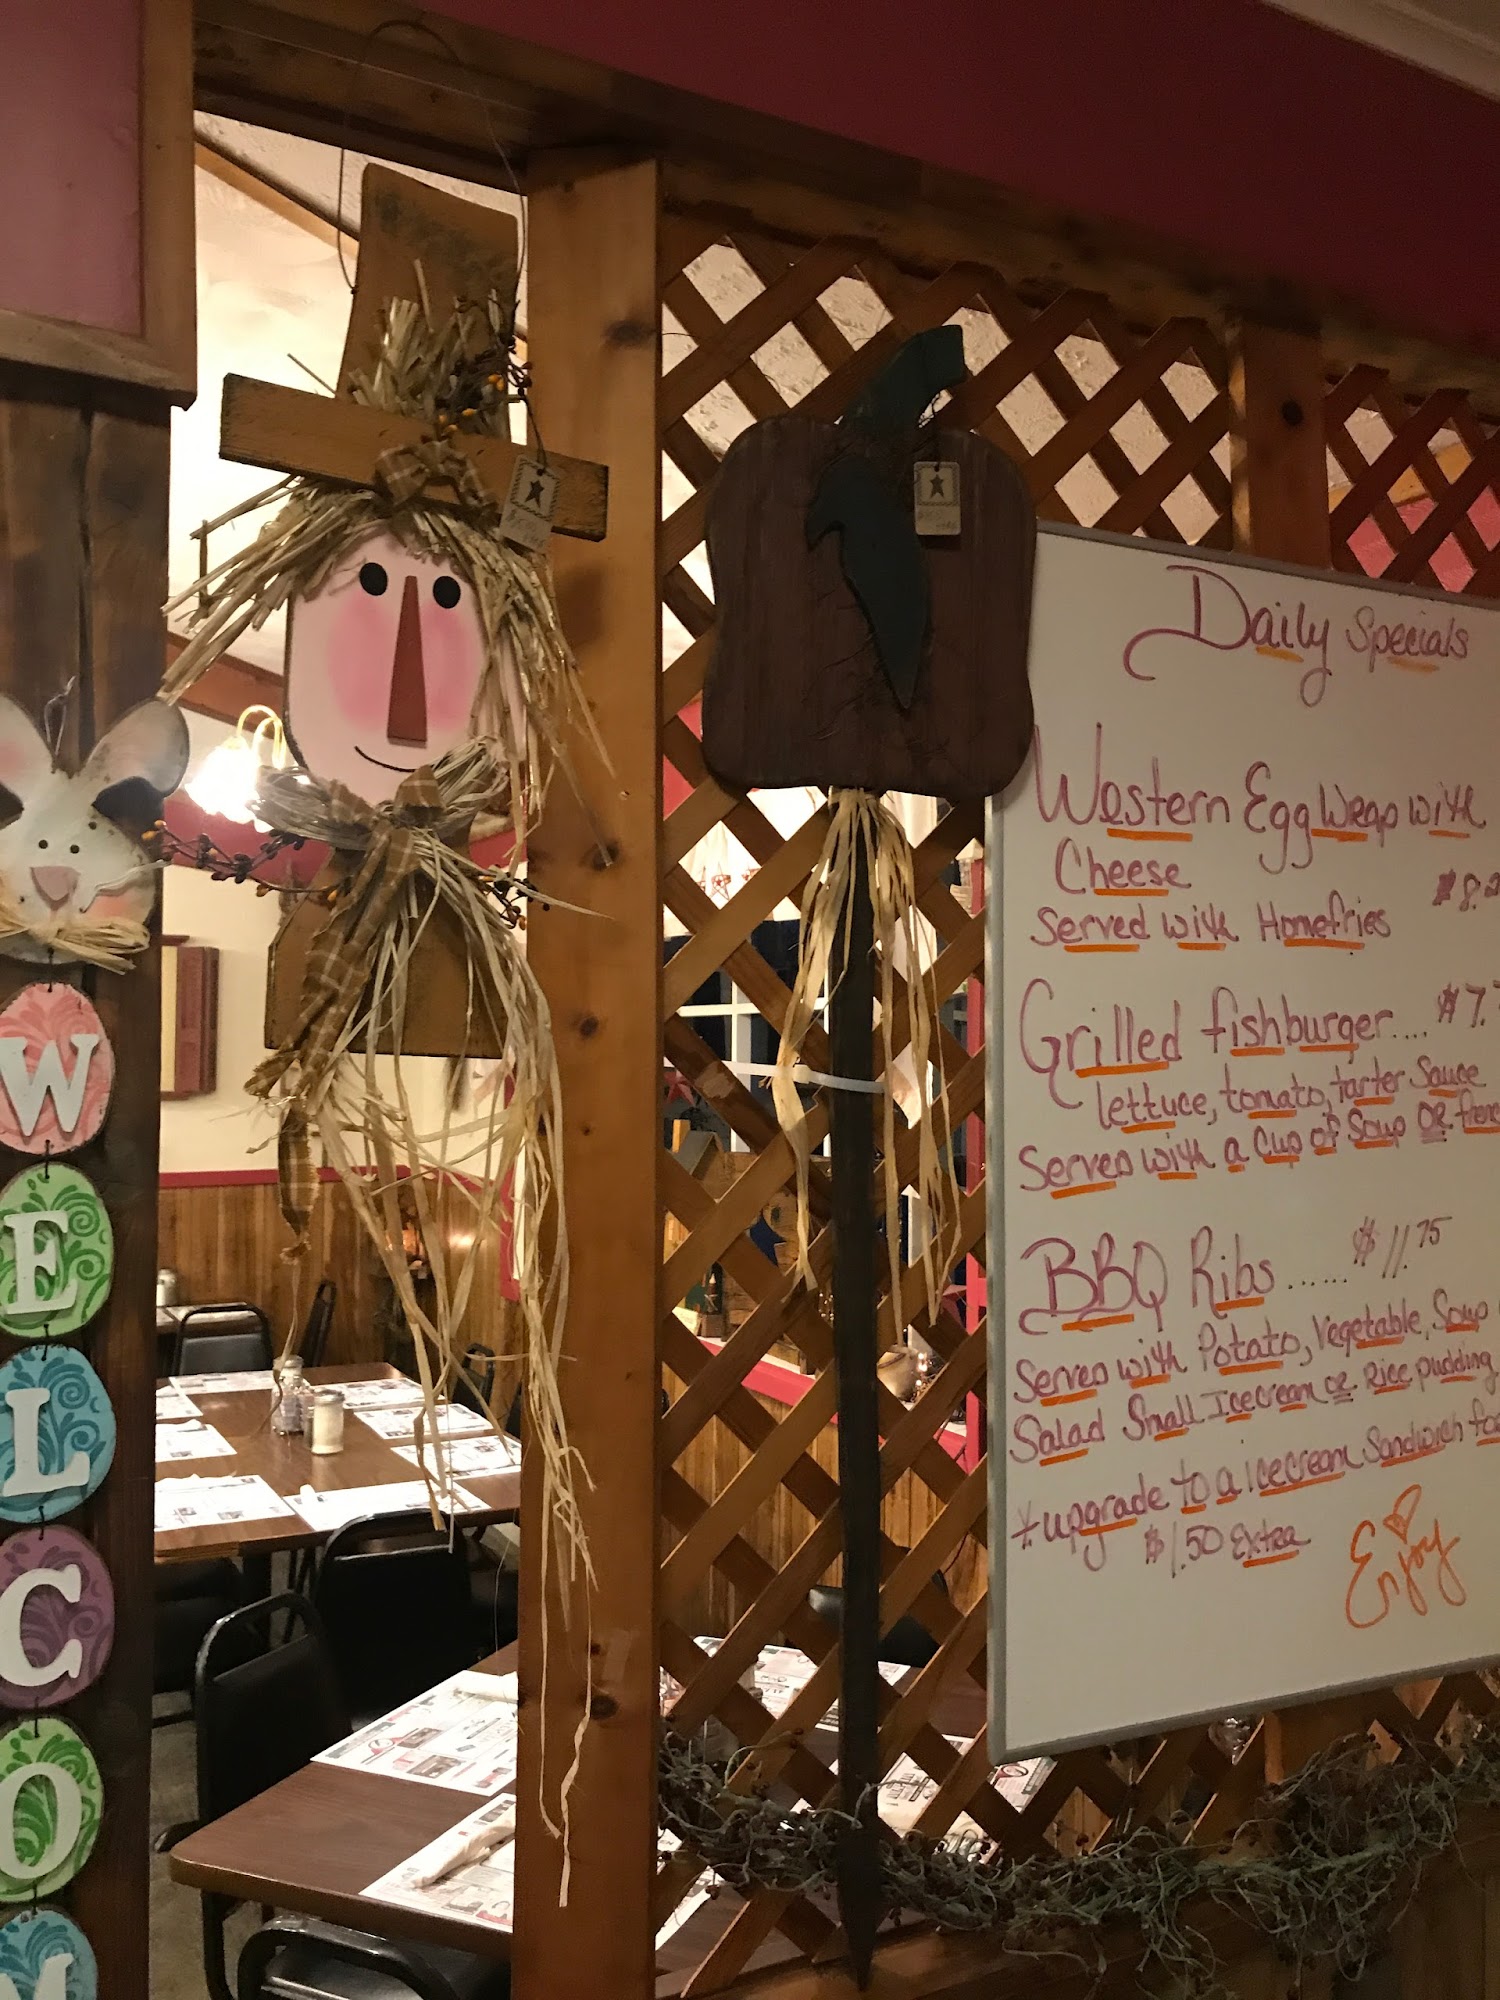 Daily Specials
Western Egg Wrap with
Cheese
Served with Homefries $8.
Grilled fishburger.... $7.
lettuce, tomato, tarter Sauce
Served with a Cup of Soup OR
BBQ Ribs ...... $11.75
Served with Potato, Vegetable, Soup
Salad Small Icecream or Rice pudding
*upgrade to a icecream Sandwich
$1.50 Extra
Enjoy
W
E
L
C
O
M